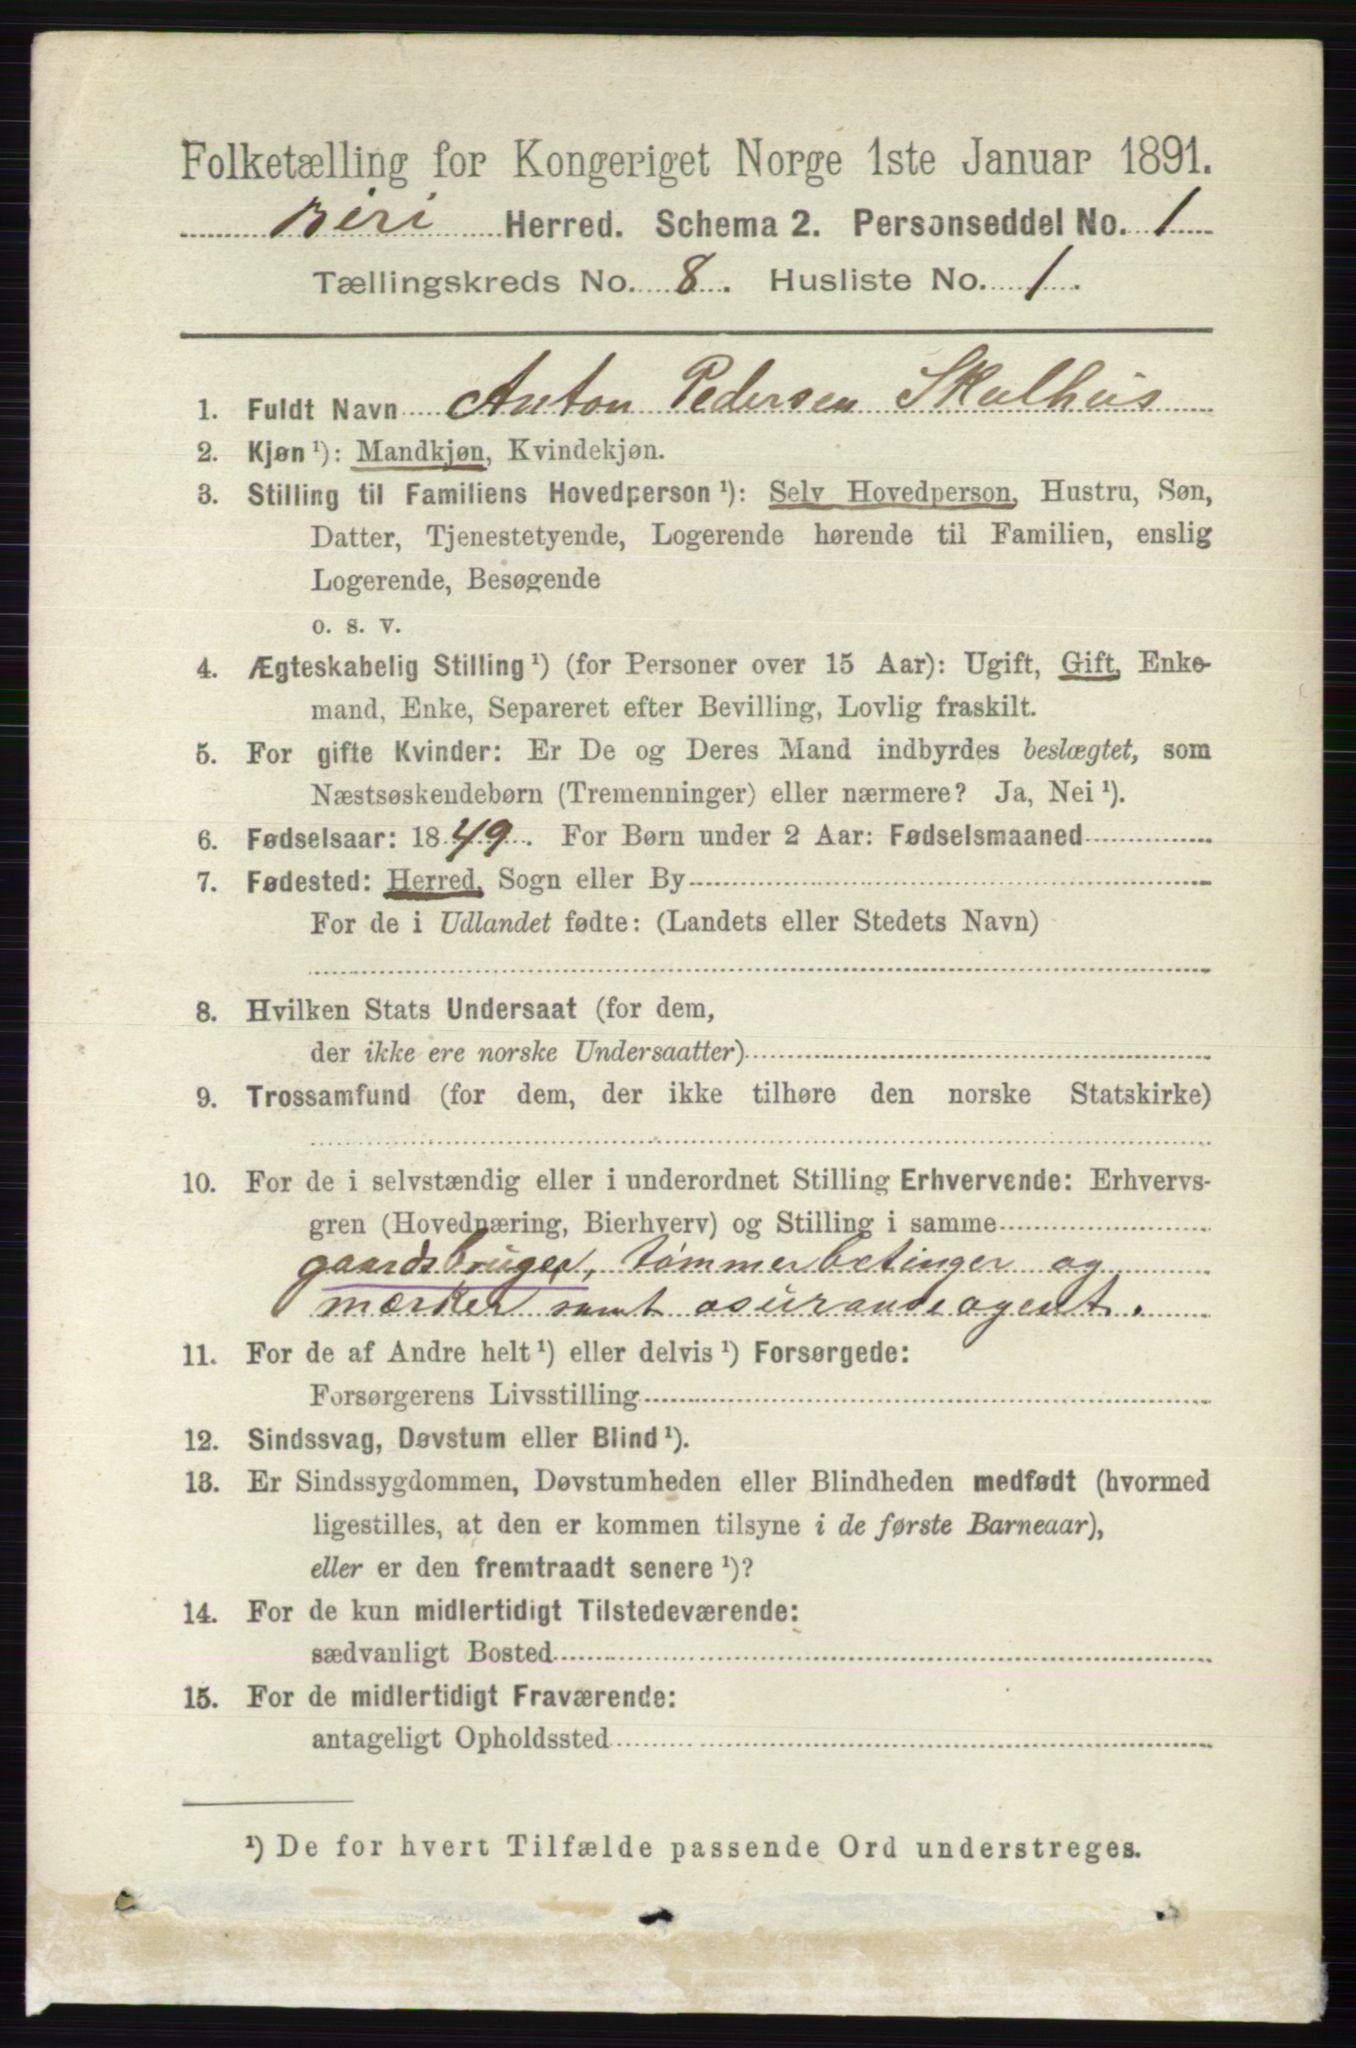 Folketælling for Kongeriget Norge 1ste Januar 1891.
Biri Herred. Schema 2. Personseddel No. 1
Tællingskreds No. 8. Husliste No. 1.
1. Fuldt Navn Anton Pedersen Skulhus
2. Kjøn ¹): Mandkjøn, Kvindekjøn.
3. Stilling til Familiens Hovedperson ¹): Selv Hovedperson, Hustru, Søn,
Datter, Tjenestetyende, Logerende hørende til Familien, enslig
Logerende, Besøgende
o. s. v.
4. Ægteskabelig Stilling ¹) (for Personer over 15 Aar): Ugift, Gift, Enke-
mand, Enke, Separeret efter Bevilling, Lovlig fraskilt.
5. For gifte Kvinder: Er De og Deres Mand indbyrdes beslægtet, som
Næstsøskendebørn (Tremenninger) eller nærmere? Ja, Nei ¹).
6. Fødselsaar: 1849. For Børn under 2 Aar: Fødselsmaaned
7. Fødested: Herred, Sogn eller By
For de i Udlandet fødte: (Landets eller Stedets Navn)
8. Hvilken Stats Undersaat (for dem,
der ikke ere norske Undersaatter)
9. Trossamfund (for dem, der ikke tilhøre den norske Statskirke)
10. For de i selvstændig eller i underordnet Stilling Erhvervende: Erhvervs-
gren (Hovednæring, Bierhverv) og Stilling i samme
gaardsbruger, tømmerbetinger og
mærker samt asuranseagent.
11. For de af Andre helt ¹) eller delvis ¹) Forsørgede:
Forsørgerens Livsstilling
12. Sindssvag, Døvstum eller Blind ¹).
13. Er Sindssygdommen, Døvstumheden eller Blindheden medfødt (hvormed
ligestilles, at den er kommen tilsyne i de første Barneaar),
eller er den fremtraadt senere ¹)?
14. For de kun midlertidigt Tilstedeværende:
sædvanligt Bosted
15. For de midlertidigt Fraværende:
antageligt Opholdssted
¹) De for hvert Tilfælde passende Ord understreges.